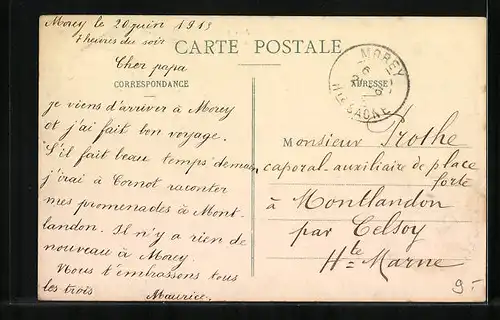 Morey le 20 juin 1913
7 heures du soir
CARTE POSTALE
Cher papa
CORRESPONDANCE
ADRESSE
MOREY
Hte SAONE
je viens d'arriver à Morey
et j'ai fait bon voyage.
S'il fait beau temps demain
j'irai à Cornot raconter
mes promenades à Mont-
landon. Il n'y a rien de
nouveau à Morey.
Nous t'embrassons tous
les trois
Maurice.
Monsieur Prothe
caporal-auxiliaire de place
forte
à Montlandon
par Celsoy
Hte Marne
9.-